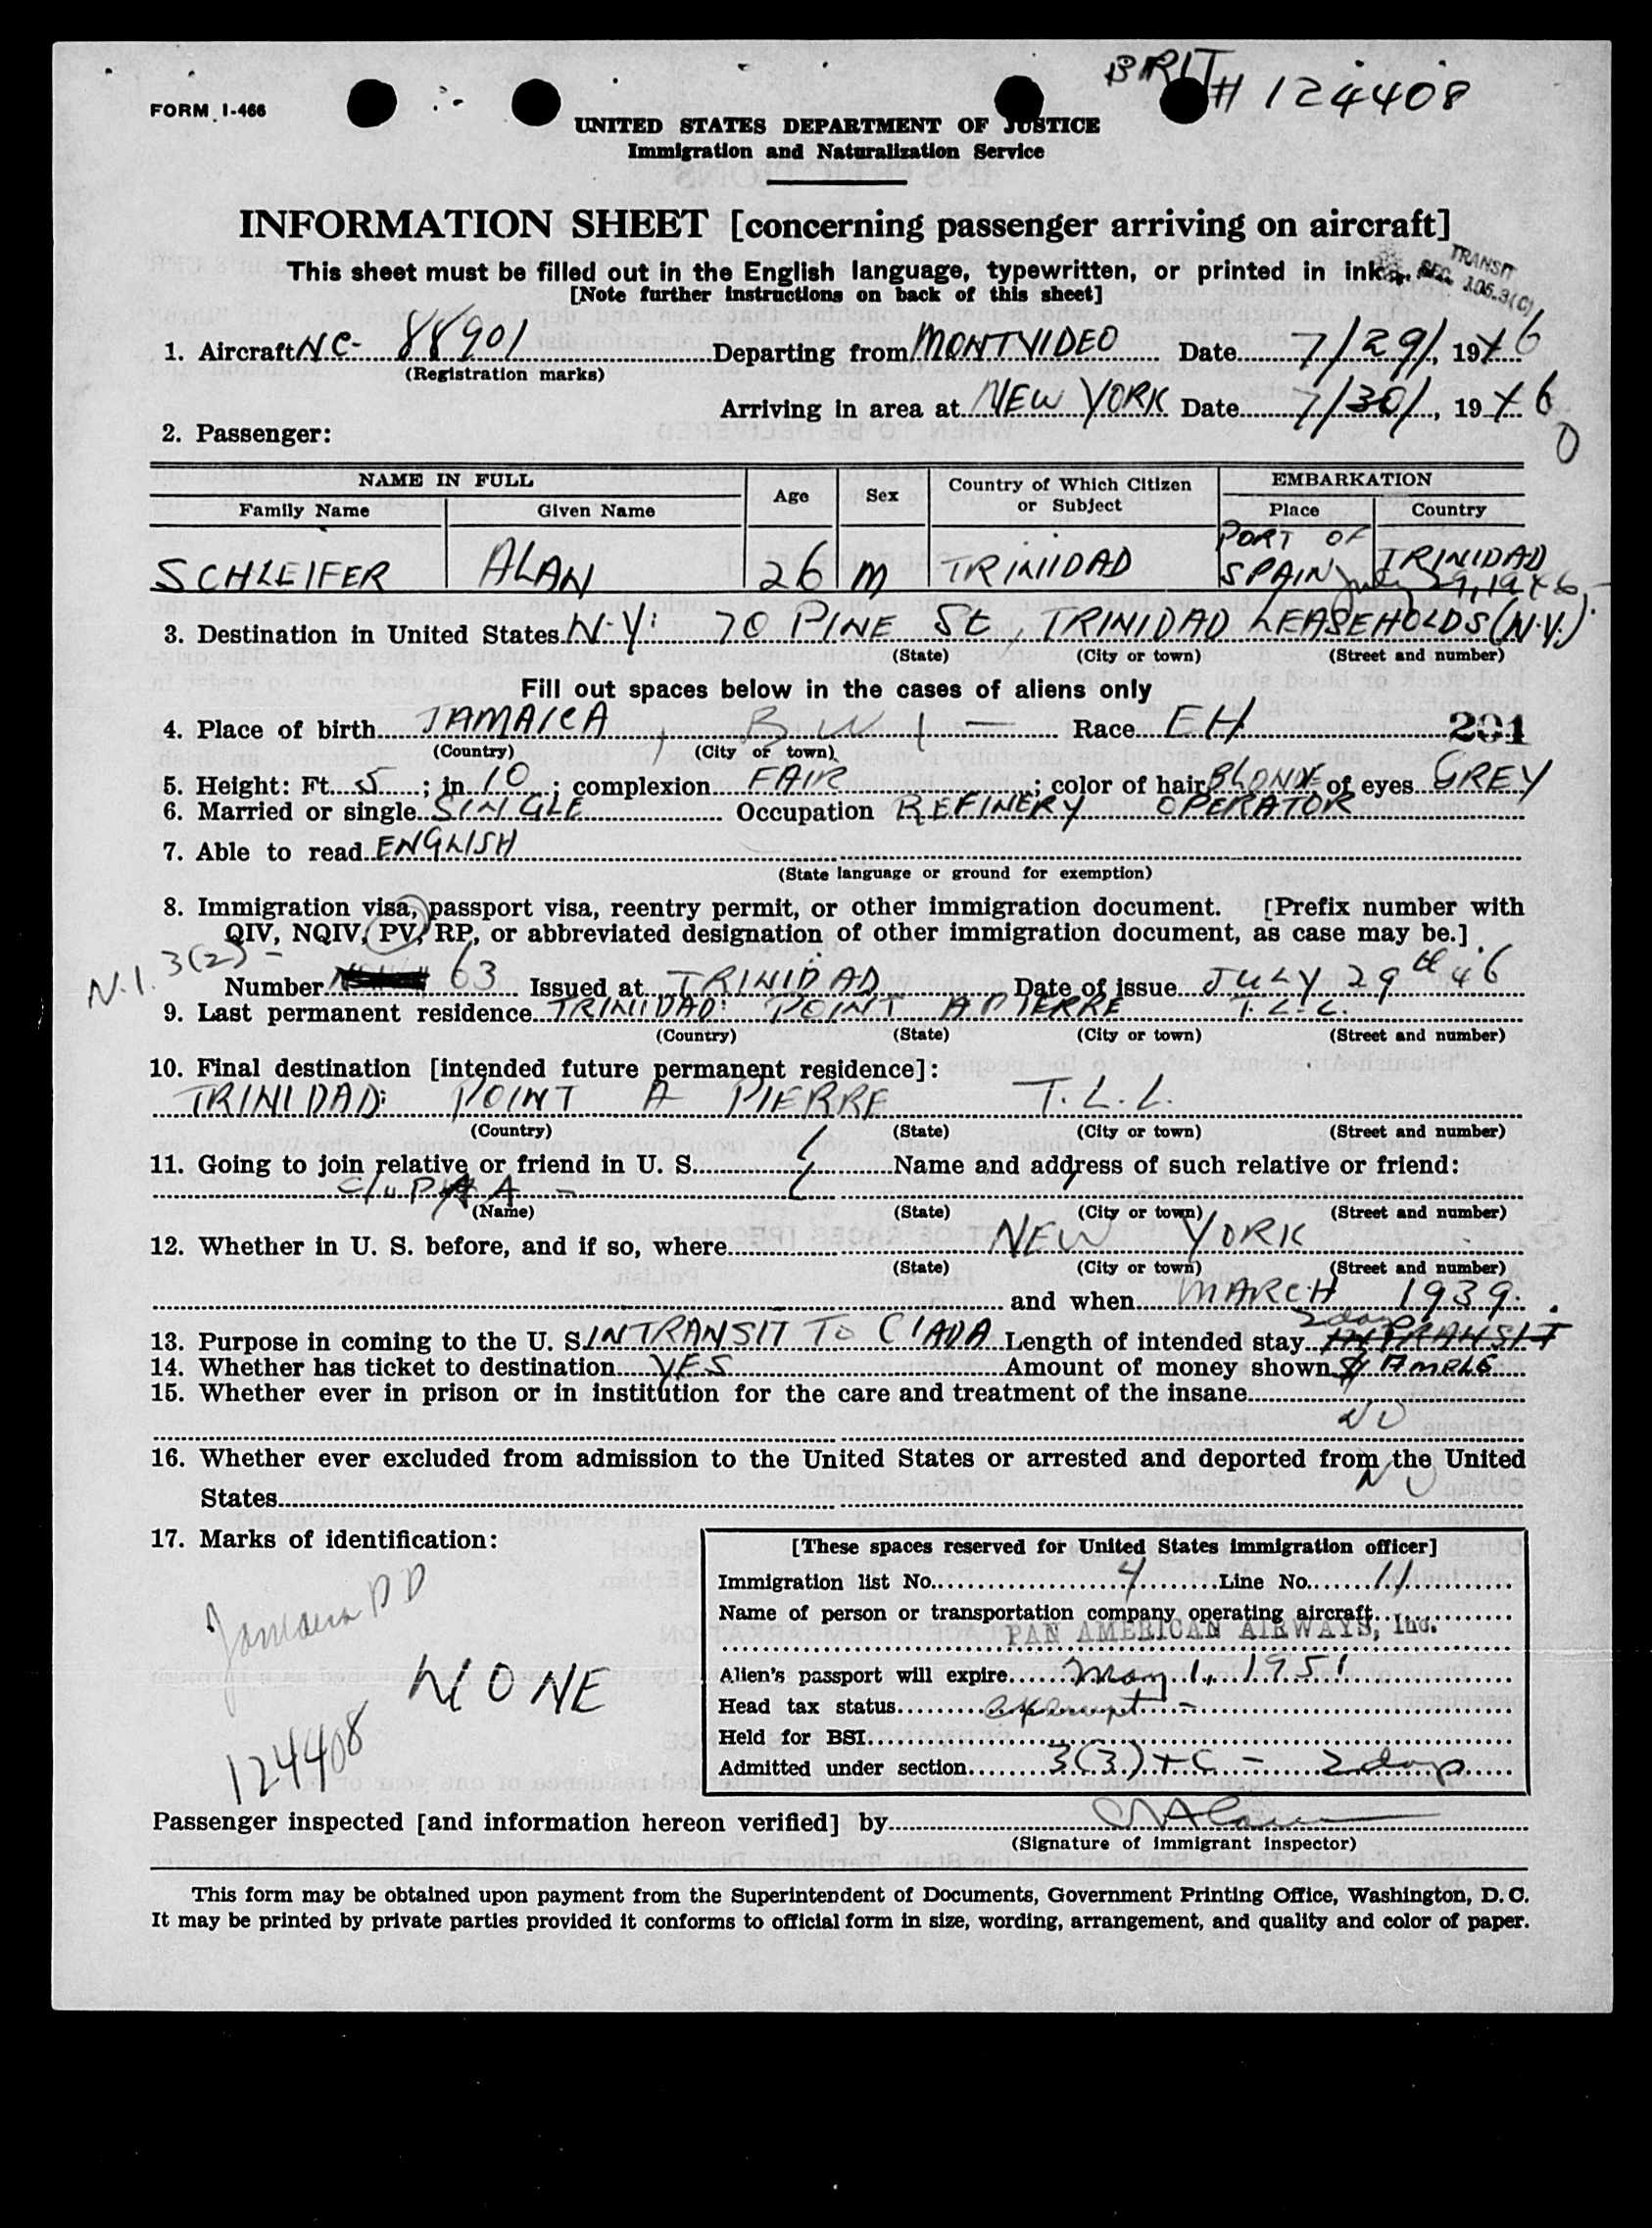 BRIT # 124408
FORM I-466
UNITED STATES DEPARTMENT OF JUSTICE
Immigration and Naturalization Service
INFORMATION SHEET [concerning passenger arriving on aircraft]
This sheet must be filled out in the English language, typewritten, or printed in ink.
[Note further instructions on back of this sheet]
TRANSIT
SEC. 106.3(C)
1. Aircraft NC- 88901 Departing from MONTVIDEO Date 7/29/, 1946
(Registration marks)
Arriving in area at NEW YORK Date 7/30/, 1946
0
2. Passenger:
NAME IN FULL Age Sex Country of Which Citizen or Subject EMBARKATION
Family Name Given Name Place Country
SCHLEIFER ALAN 26 M TRINIDAD PORT OF SPAIN TRINIDAD
July 29, 1946
3. Destination in United States N.Y: 70 PINE St, TRINIDAD LEASEHOLDS (N.Y.)
(State) (City or town) (Street and number)
Fill out spaces below in the cases of aliens only
4. Place of birth JAMAICA, B W I - Race EH 291
(Country) (City or town)
5. Height: Ft. 5; in. 10; complexion FAIR; color of hair BLONDE of eyes GREY
6. Married or single SINGLE Occupation REFINERY OPERATOR
7. Able to read ENGLISH
(State language or ground for exemption)
8. Immigration visa, passport visa, reentry permit, or other immigration document. [Prefix number with
QIV, NQIV, PV, RP, or abbreviated designation of other immigration document, as case may be.]
N.I. 3(2) -
Number 63 Issued at TRINIDAD Date of issue JULY 29th 46
9. Last permanent residence TRINIDAD: POINT A PIERRE T.L.L.
(Country) (State) (City or town) (Street and number)
10. Final destination [intended future permanent residence]:
TRINIDAD: POINT A PIERRE T.L.L.
(Country) (State) (City or town) (Street and number)
11. Going to join relative or friend in U. S. Name and address of such relative or friend:
c/o PAA -
(Name) (State) (City or town) (Street and number)
12. Whether in U. S. before, and if so, where NEW YORK
(State) (City or town) (Street and number)
and when MARCH 1939.
2 days
13. Purpose in coming to the U. S. INTRANSIT TO CIADA Length of intended stay INTRANSIT
14. Whether has ticket to destination YES Amount of money shown $ AMPLE
15. Whether ever in prison or in institution for the care and treatment of the insane
NO
16. Whether ever excluded from admission to the United States or arrested and deported from the United
States NO
17. Marks of identification:
Jamaica PP
124408
NONE
[These spaces reserved for United States immigration officer]
Immigration list No. 4 Line No. 11
Name of person or transportation company operating aircraft
PAN AMERICAN AIRWAYS, Inc.
Alien's passport will expire May 1, 1951
Head tax status exempt -
Held for BSI
Admitted under section 3(3) + C - 2 days
Passenger inspected [and information hereon verified] by
(Signature of immigrant inspector)
This form may be obtained upon payment from the Superintendent of Documents, Government Printing Office, Washington, D. C.
It may be printed by private parties provided it conforms to official form in size, wording, arrangement, and quality and color of paper.